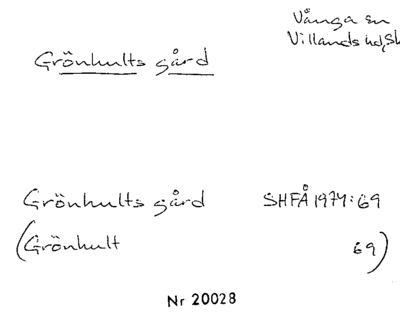 Vånga sn
Villands hd, Sk
Grönhults gård
Grönhults gård SHFÅ 1974:69
(Grönhult 69)
Nr 20028